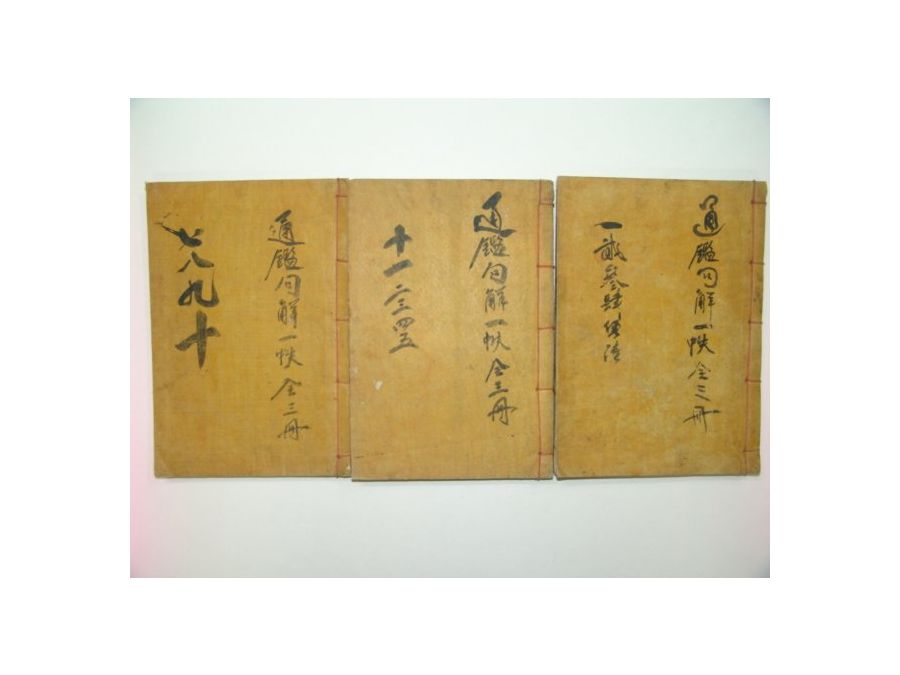 通鑑句解一帙全三冊
一貳參肆伍陸
通鑑句解一帙全三冊
十一二三四五
通鑑句解一帙全三冊
七八九十